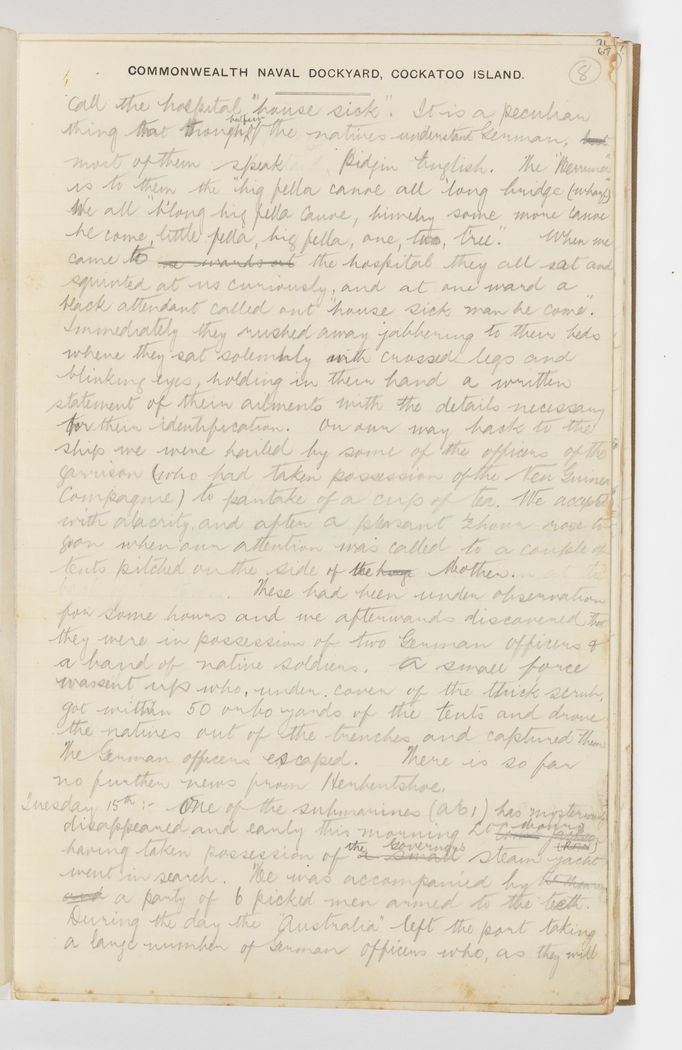 8
COMMONWEALTH NAVAL DOCKYARD, COCKATOO ISLAND.
call the hospital "house sick". It is a peculiar
thing that though the natives understand German,
most of them speak Pidjin English. The "Berrima"
is to them the "big fella canoe all 'long bridge (wharf)
We all "b'long big fella canoe, bimeby some more canoe
he come, little fella, big fella, one, two, tree." When we
came to the hospital they all sat and
squinted at us curiously, and at one ward a
black attendant called out "house sick man he come".
Immediately they rushed away jabbering to their beds
where they sat solemnly with crossed legs and
blinking eyes, holding in their hand a written
statement of their ailments with the details necessary
for their identification. On our way back to the
ship we were hailed by some of the officers of the
garrison (who had taken possession of the New Guinea
Compagnie) to partake of a cup of tea. We accepted
with alacrity, and after a pleasant ½ hour rose to
goon when our attention was called to a couple of
tents pitched on the side of the Mother.
These had been under observation
for some hours and we afterwards discovered that
they were in possession of two German officers &
a band of native soldiers. A small force
was sent up who, under cover of the thick scrub,
got within 50 or 60 yards of the tents and drove
the natives out of the trenches and captured them
The German officers escaped. There is so far
no further news from Herbertshoe.
Tuesday 15th :- One of the submarines (AE1) has mysteriously
disappeared and early this morning Lt
(RAN)
having taken possession of the Governor's steam yacht
went in search. He was accompanied by
and a party of 6 picked men armed to the teeth.
During the day the "Australia" left the port taking
a large number of German officers who, as they will